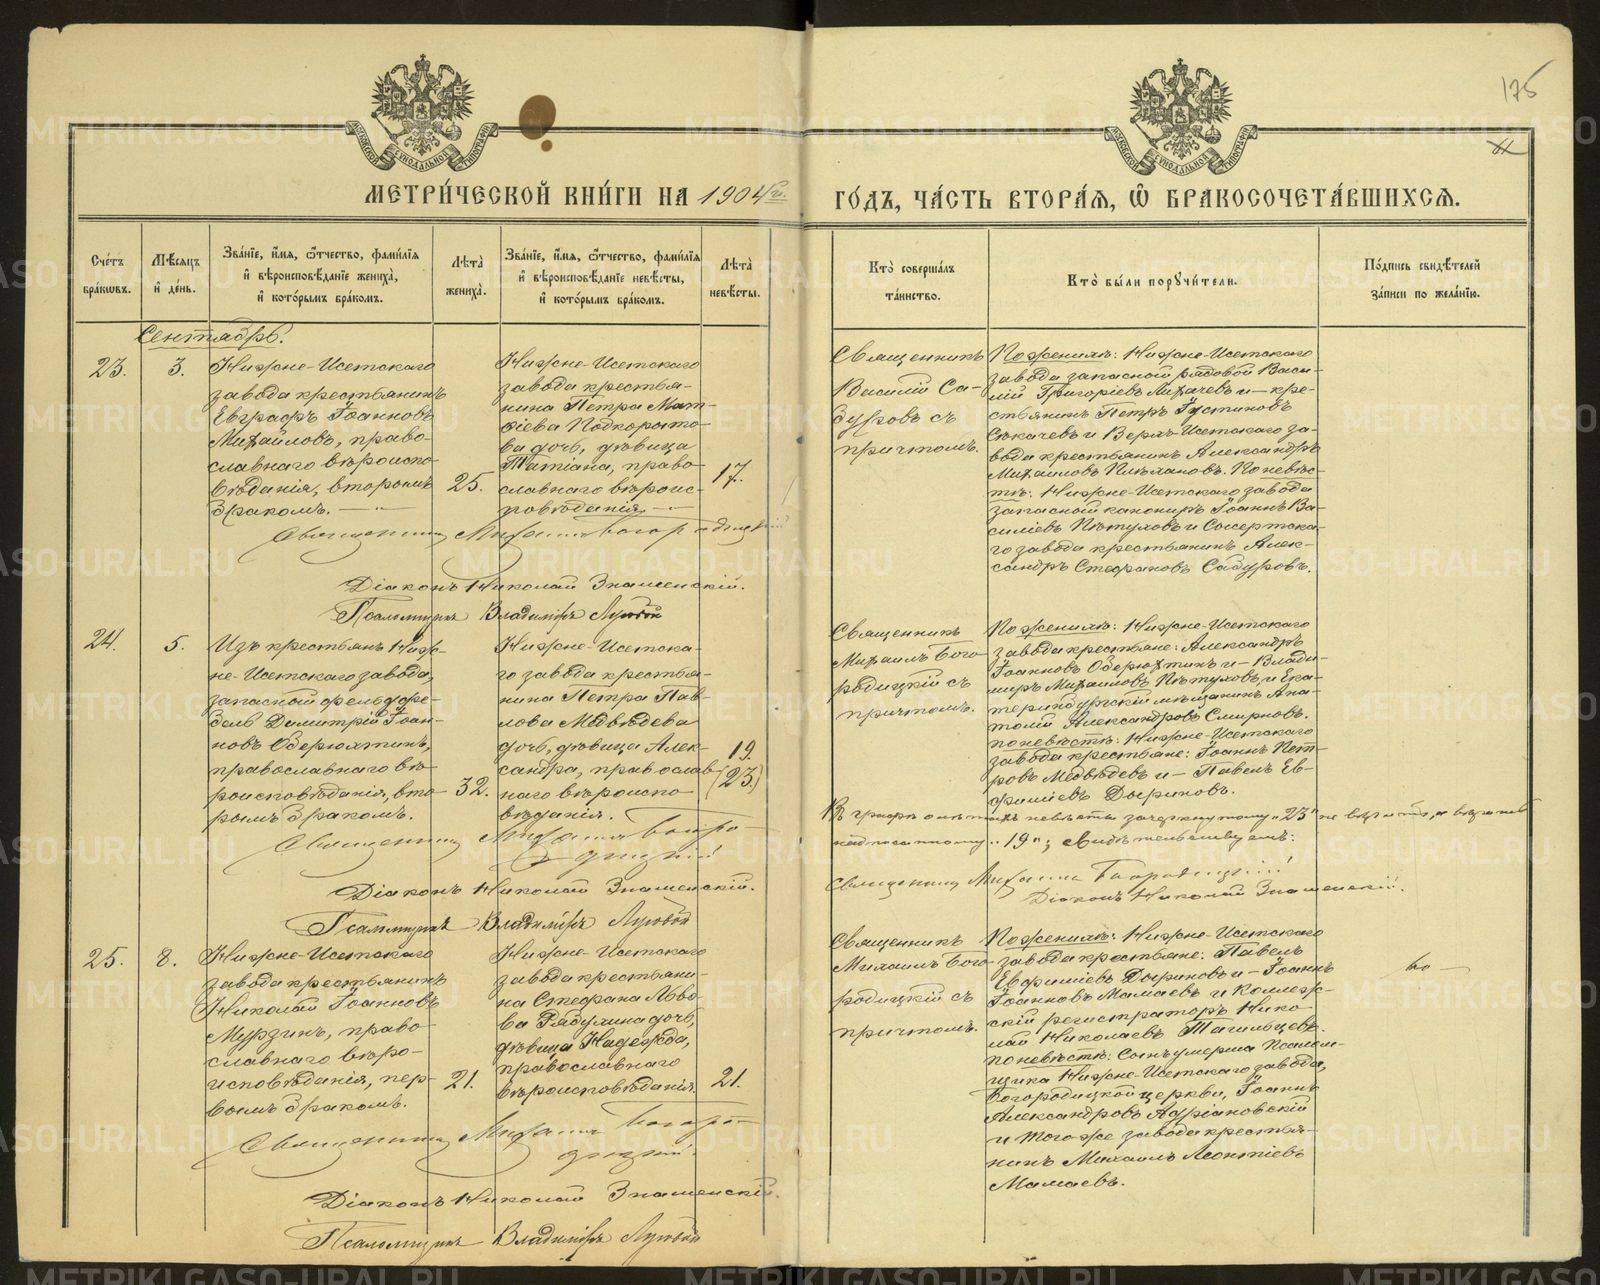 175
МЕТРИЧЕСКОЙ КНИГИ НА 1904й. ГОДЪ, ЧАСТЬ ВТОРАЯ, Ѿ БРАКОСОЧЕТАВШИХСЯ.
Счетъ браковъ.
Мѣсяцъ и день.
Званіе, имя, отчество, фамилія и вѣроисповѣданіе жениха, и которымъ бракомъ.
Лѣта жениха.
Званіе, имя, отчество, фамилія и вѣроисповѣданіе невѣсты, и которымъ бракомъ.
Лѣта невѣсты.
Кто совершалъ таинство.
Кто были поручители.
Подпись свидѣтелей записи по желанію.
Сентябрь.
23.
3.
Нижне-Исетскаго
завода крестьянинъ
Евграфъ Іоанновъ
Михайловъ, право-
славнаго вѣроиспо-
вѣданія, вторымъ
бракомъ.
25.
Нижне-Исетскаго
завода крестья-
нина Петра Мат-
ѳіева Подкорыто-
ва дочь, дѣвица
Татіана, право-
славнаго вѣроис-
повѣданія.
17.
Священникъ
Василій Са-
дуровъ съ
причтомъ.
По женихѣ: Нижне-Исетскаго
завода запасной рядовой Васи-
лій Григоріевъ Лихачевъ и кре-
стьянинъ Петръ Іустиновъ
Секачевъ и Верхъ-Исетскаго за-
вода крестьянинъ Александръ
Михаиловъ Плехановъ. По невѣс-
тѣ: Нижне-Исетскаго завода
запасной канониръ Іоаннъ Ва-
силіевъ Пѣтуховъ и Сысертска-
го завода крестьянинъ Алек-
сандръ Стефановъ Садуровъ.
Священникъ Михаилъ Богородицкій
Діаконъ Николай Знаменскій.
Псаломщикъ Владиміръ Луговой
24.
5.
Изъ крестьянъ Ниж-
не-Исетскаго завода,
запасной фельдфе-
бель Димитрій Іоан-
новъ Оберюхтинъ,
православнаго вѣ-
роисповѣданія, вто-
рымъ бракомъ.
32.
Нижне-Исетска-
го завода крестья-
нина Петра Пав-
лова Медвѣдева
дочь, дѣвица Алек-
сандра, православ-
наго вѣроиспо-
вѣданія.
19.
(23.)
Священникъ
Михаилъ Бого-
родицкій съ
причтомъ.
По женихѣ: Нижне-Исетскаго
завода крестьяне: Александръ
Іоанновъ Оберюхтинъ и Влади-
миръ Михаиловъ Пѣтуховъ и Ека-
теринбургскій мѣщанинъ Ана-
толій Александровъ Смирновъ.
по невѣстѣ: Нижне-Исетскаго
завода крестьяне: Іоаннъ Пет-
ровъ Медвѣдевъ и Павелъ Ев-
фиміевъ Дыриновъ.
Въ графѣ о лѣтахъ невѣсты зачеркнутому "23" не вѣрить, а вѣрить
надписанному "19"; свидѣтельствуемъ:
Священникъ Михаилъ Богородицкій
Діаконъ Николай Знаменскій.
Священникъ Михаилъ Богоро-
дицкій
Діаконъ Николай Знаменскій.
Псаломщикъ Владиміръ Луговой
25.
8.
Нижне-Исетскаго
завода крестьянинъ
Николай Іоанновъ
Мурзинъ, право-
славнаго вѣро-
исповѣданія, пер-
вымъ бракомъ.
21.
Нижне-Исетскаго
завода крестьяни-
на Стефана Льво-
ва Рябулина дочь,
дѣвица Надежда,
православнаго
вѣроисповѣданія.
21.
Священникъ
Михаилъ Бого-
родицкій съ
причтомъ.
По женихѣ: Нижне-Исетскаго
завода крестьяне: Павелъ
Евфиміевъ Дыриновъ и Іоаннъ
Іоанновъ Мамаевъ и Коллеж-
скій регистраторъ Нико-
лай Николаевъ Тагильцевъ.
по невѣстѣ: сынъ умерша псалом-
щика Нижне-Исетскаго завода,
Богородицкой церкви, Іоаннъ
Александровъ Адріановскій
и того же завода крестья-
нинъ Михаилъ Леонтіевъ
Мамаевъ.
Священникъ Михаилъ Богоро-
дицкій.
Діаконъ Николай Знаменскій.
Псаломщикъ Владиміръ Луговой